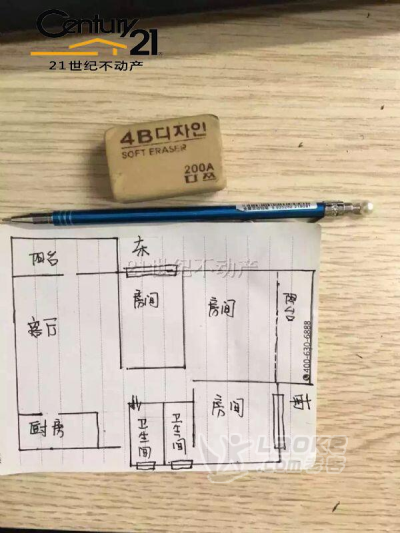 Century 21
21世纪不动产
4B디자인
SOFT ERASER
200A
阳台
东
21世纪不动产
房间
房间
阳台
客厅
400-630-6888
厨房
卫生间
卫生间
房间
.com